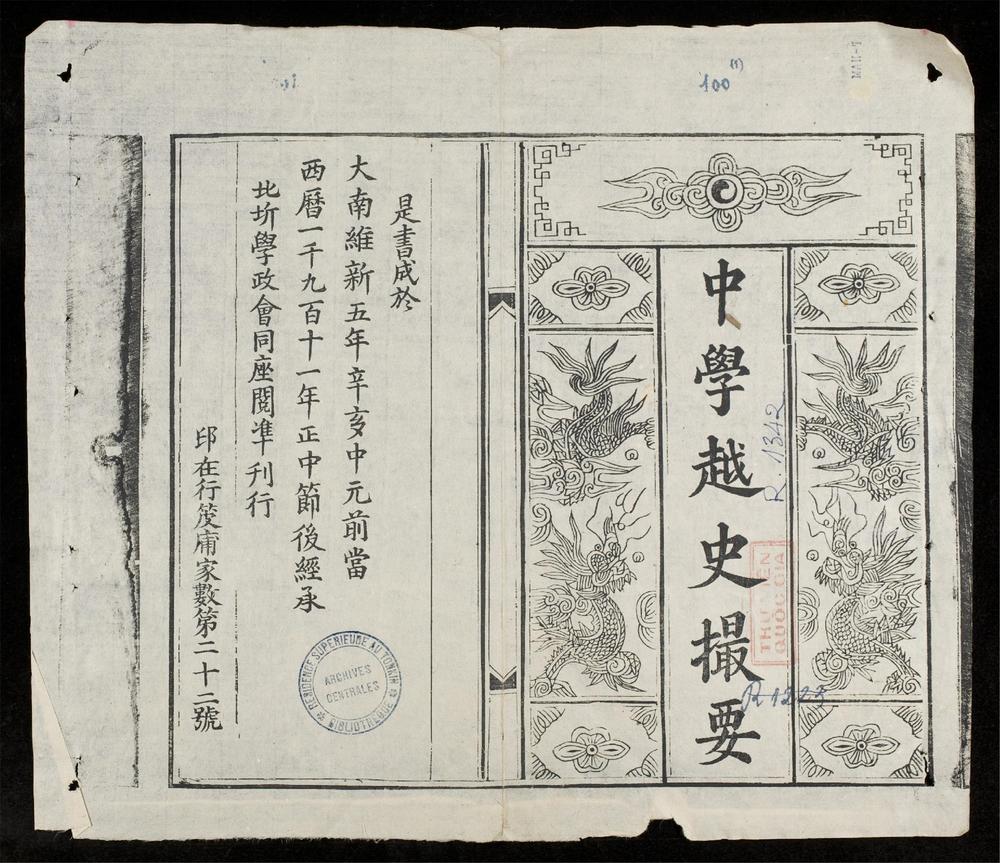 中學越史撮要
是書成於
大南維新五年辛亥中元前當
西曆一千九百十一年正中節後經承
北圻學政會同座閱準刊行
印在行筊庯家數第二十二號
100
(1)
R 1342
THƯ VIỆN
QUỐC GIA
R 1223
RESIDENCE SUPERIEURE AU TONKIN
ARCHIVES
CENTRALES
BIBLIOTHEQUE